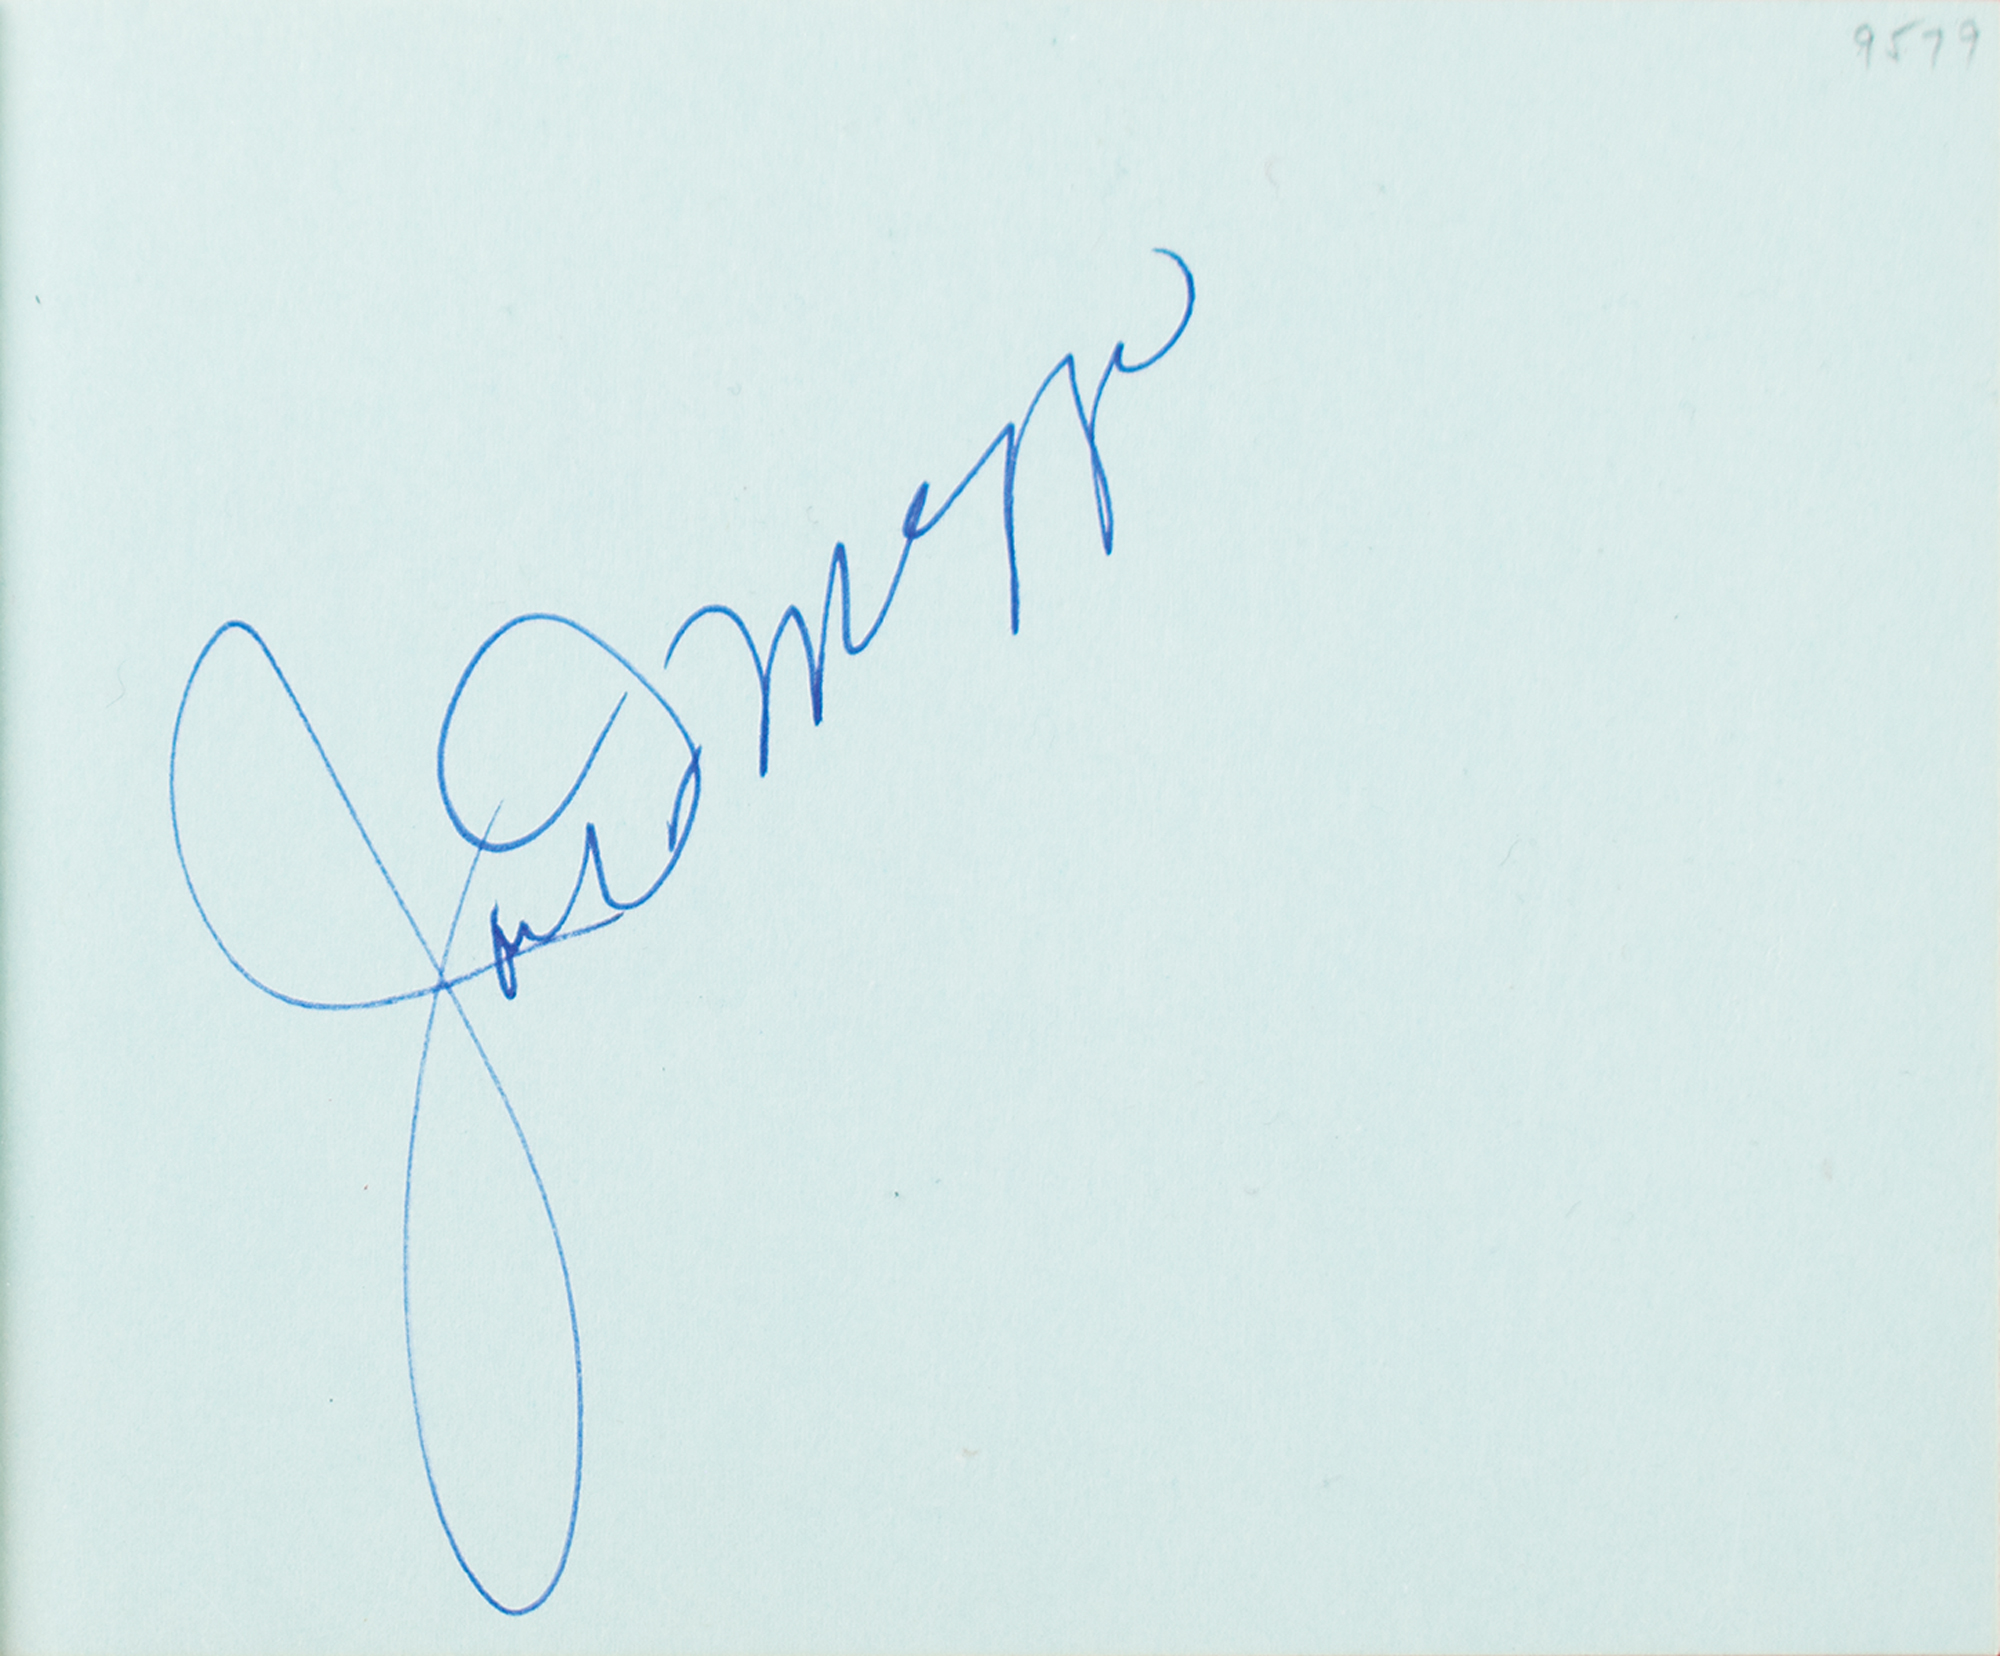 9579
Joe DiMaggio